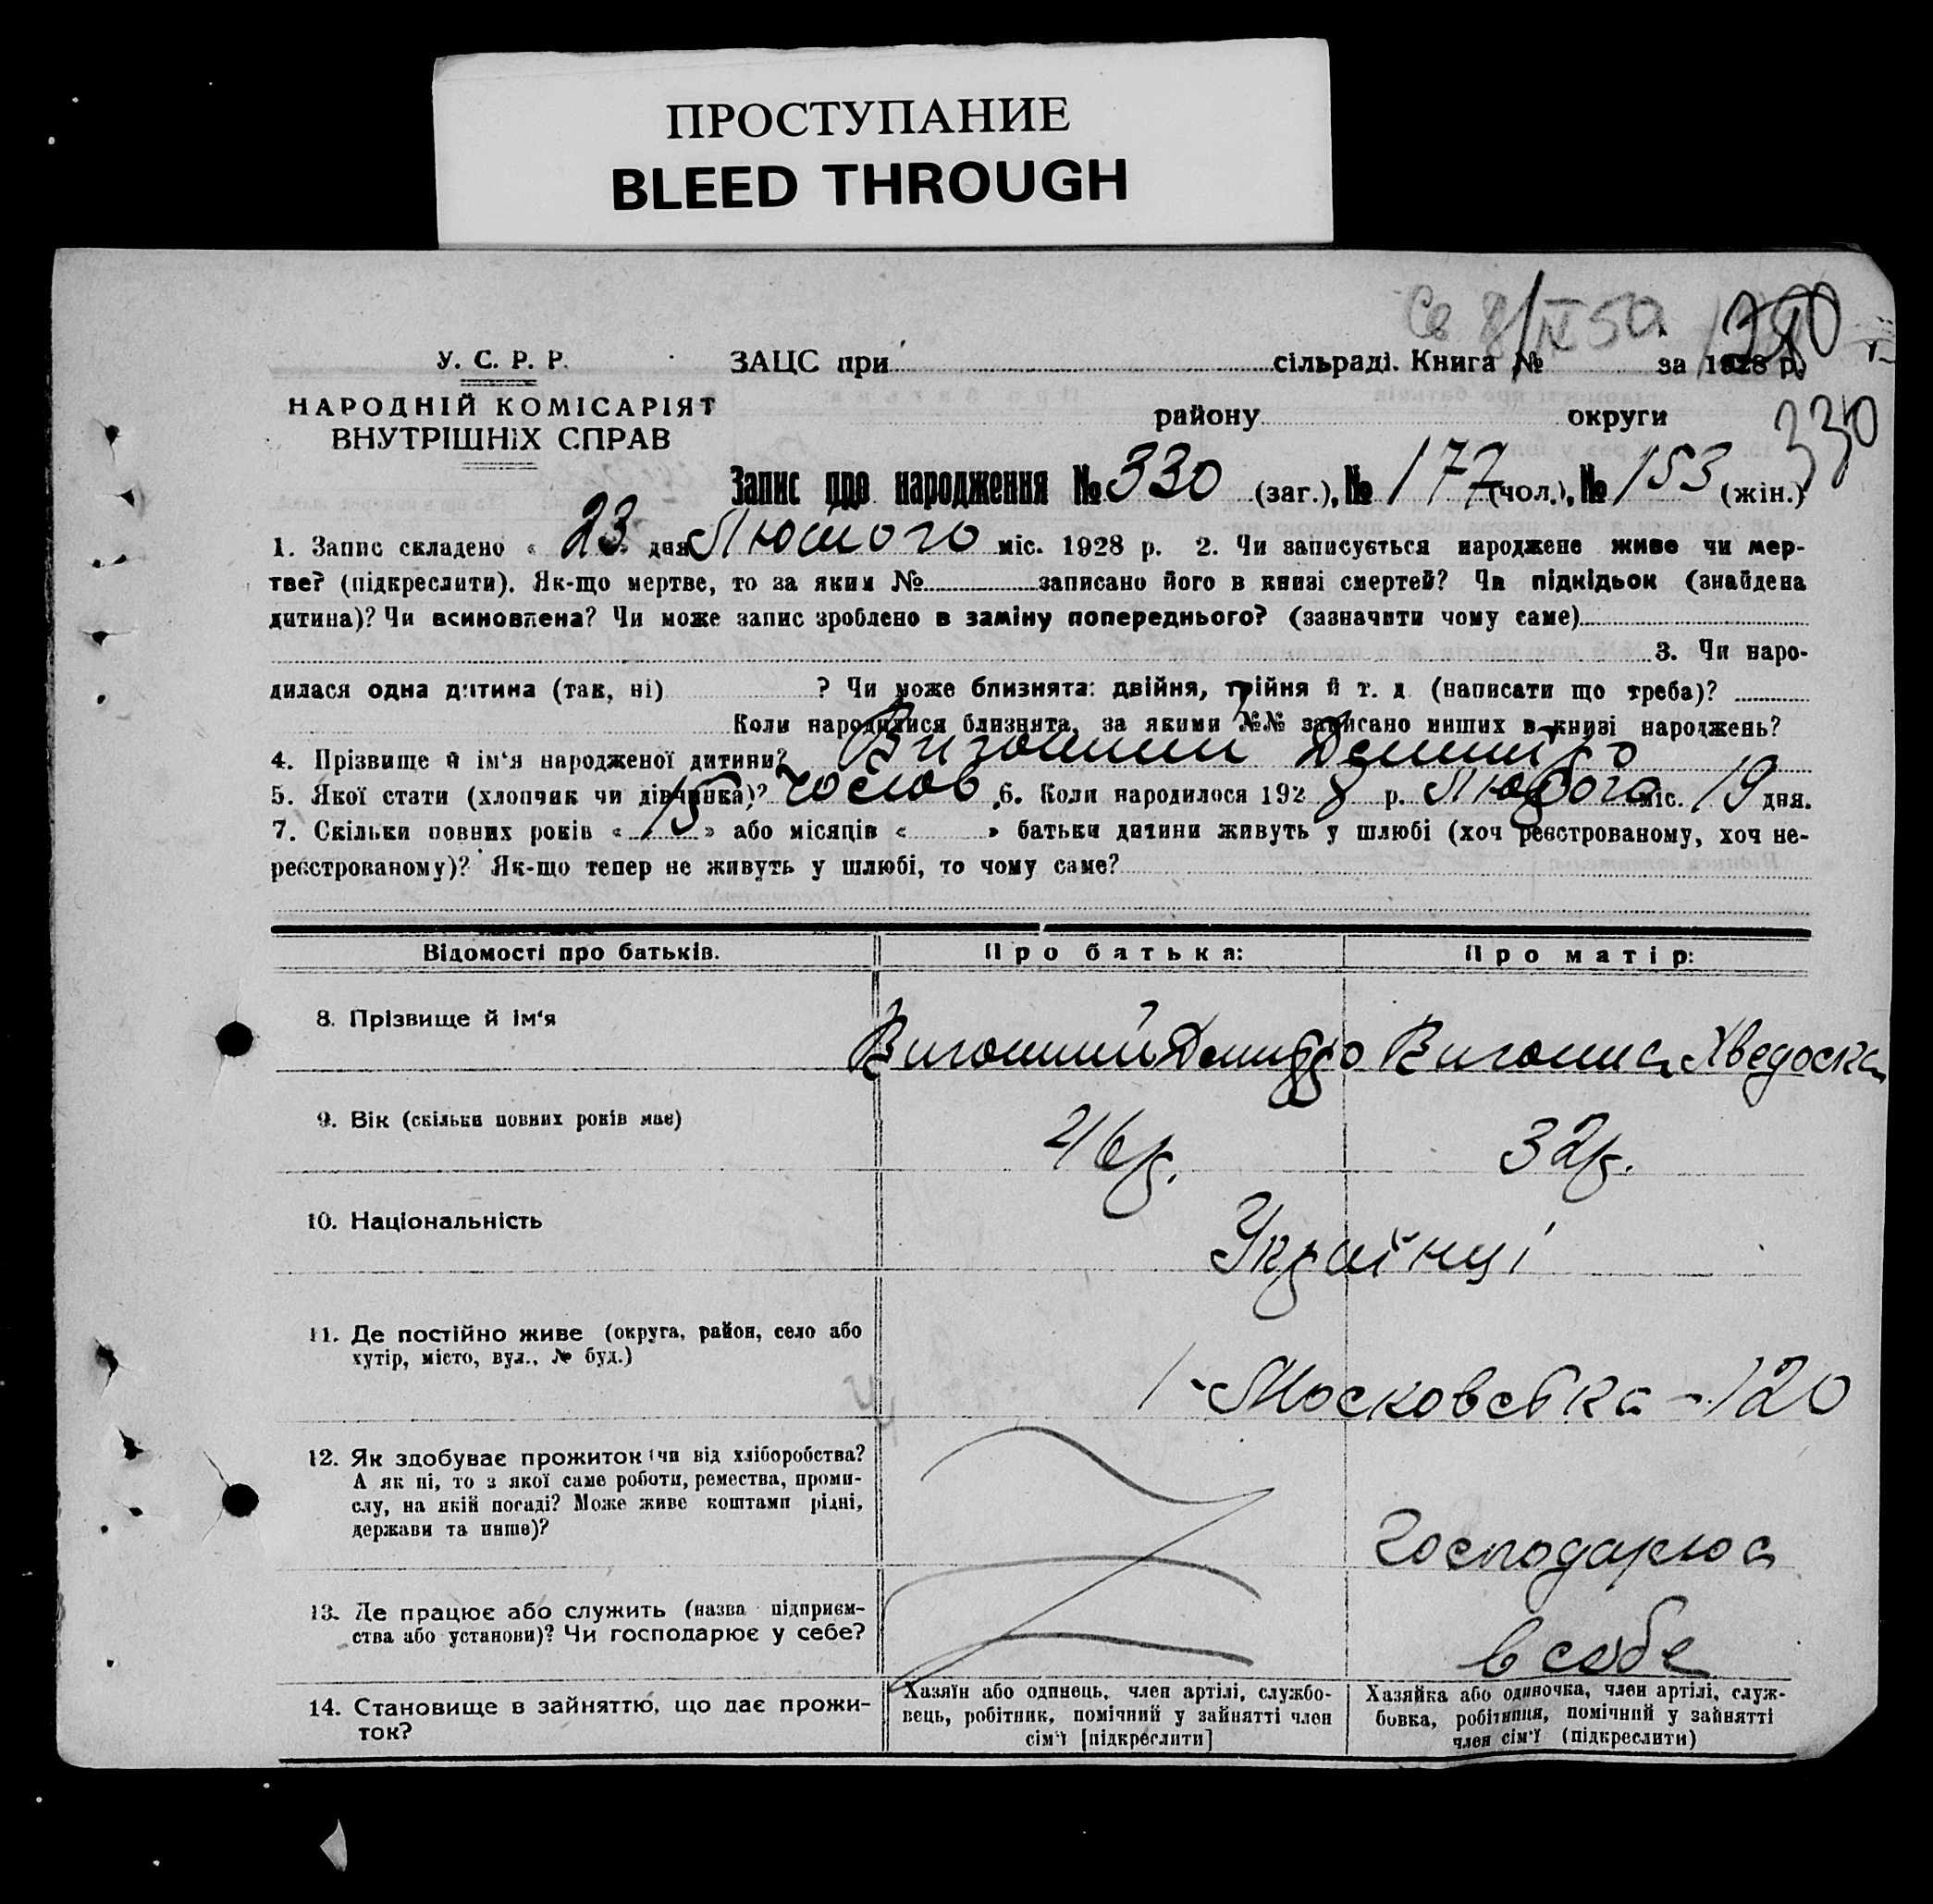 ПРОСТУПАНИЕ
BLEED THROUGH
Св 8/IV 50
330
У. С. Р. Р.
ЗАЦС при сільраді. Книга № за 1928 р.
НАРОДНІЙ КОМІСАРІЯТ
ВНУТРІШНІХ СПРАВ
району округи
330
Запис про народження № 330 (заг.), № 177 (чол.), № 153 (жін.)
1. Запис складено « 23 » дня Лютого міс. 1928 р. 2. Чи записується народжене живе чи мер-
тве? (підкреслити). Як-що мертве, то за яким № записано його в книзі смертей? Чи підкідьок (знайдена
дитина)? Чи всиновлена? Чи може запис зроблено в заміну попереднього? (зазначити чому саме)
3. Чи наро-
дилася одна дитина (так, ні) ? Чи може близнята: двійня, трійня й т. д. (написати що треба)?
Коли народилися близнята, за якими №№ записано инших в книзі народжень?
4. Прізвище й ім'я народженої дитини?
5. Якої стати (хлопчик чи дівчинка)? чолов 6. Коли народилося 1928 р. Лютого міс. 19 дня.
7. Скільки повних років « 15 » або місяців « » батьки дитини живуть у шлюбі (хоч реєстрованому, хоч не-
реєстрованому)? Як-що тепер не живуть у шлюбі, то чому саме?
Відомості про батьків. Про батька: Про матір:
8. Прізвище й ім'я Хведоска
9. Вік (скільки повних років має) 46р. 32р.
10. Національність Українці
11. Де постійно живе (округа, район, село або
хутір, місто, вул., № буд.)
1-Московська-120
12. Як здобуває прожиток (чи від хліборобства?
А як ні, то з якої саме роботи, ремества, проми-
слу, на якій посаді? Може живе коштами рідні,
держави та инше)?
Господарює
13. Де працює або служить (назва підприєм-
ства або установи)? Чи господарює у себе?
в себе
14. Становище в зайняттю, що дає прожи-
ток?
Хазяїн або одинець, член артілі, службо-
вець, робітник, помічний у зайнятті член
сім'ї [підкреслити]
Хазяйка або одиночка, член артілі, служ-
бовка, робітниця, помічний у зайнятті
член сім'ї (підкреслити)